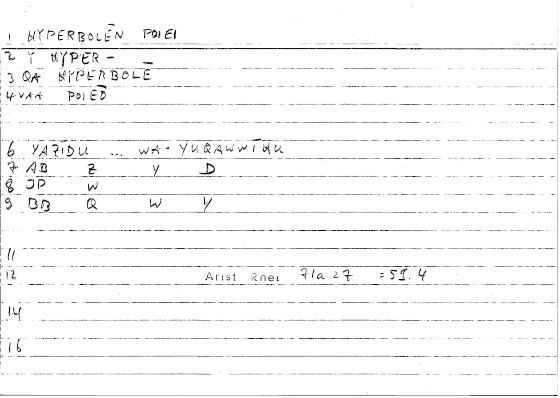 1 HYPERBOLĒN POIEI
2 Y HYPER -
3 QA HYPERBOLĒ
4 VAA POIEŌ
6 YAZĪDU ... WA-YUQAWWĪHU
7 AB Z Y D
8 JP W
9 BB Q W Y
11
12 Arist Rhet 71a27 = 59.4
14
16